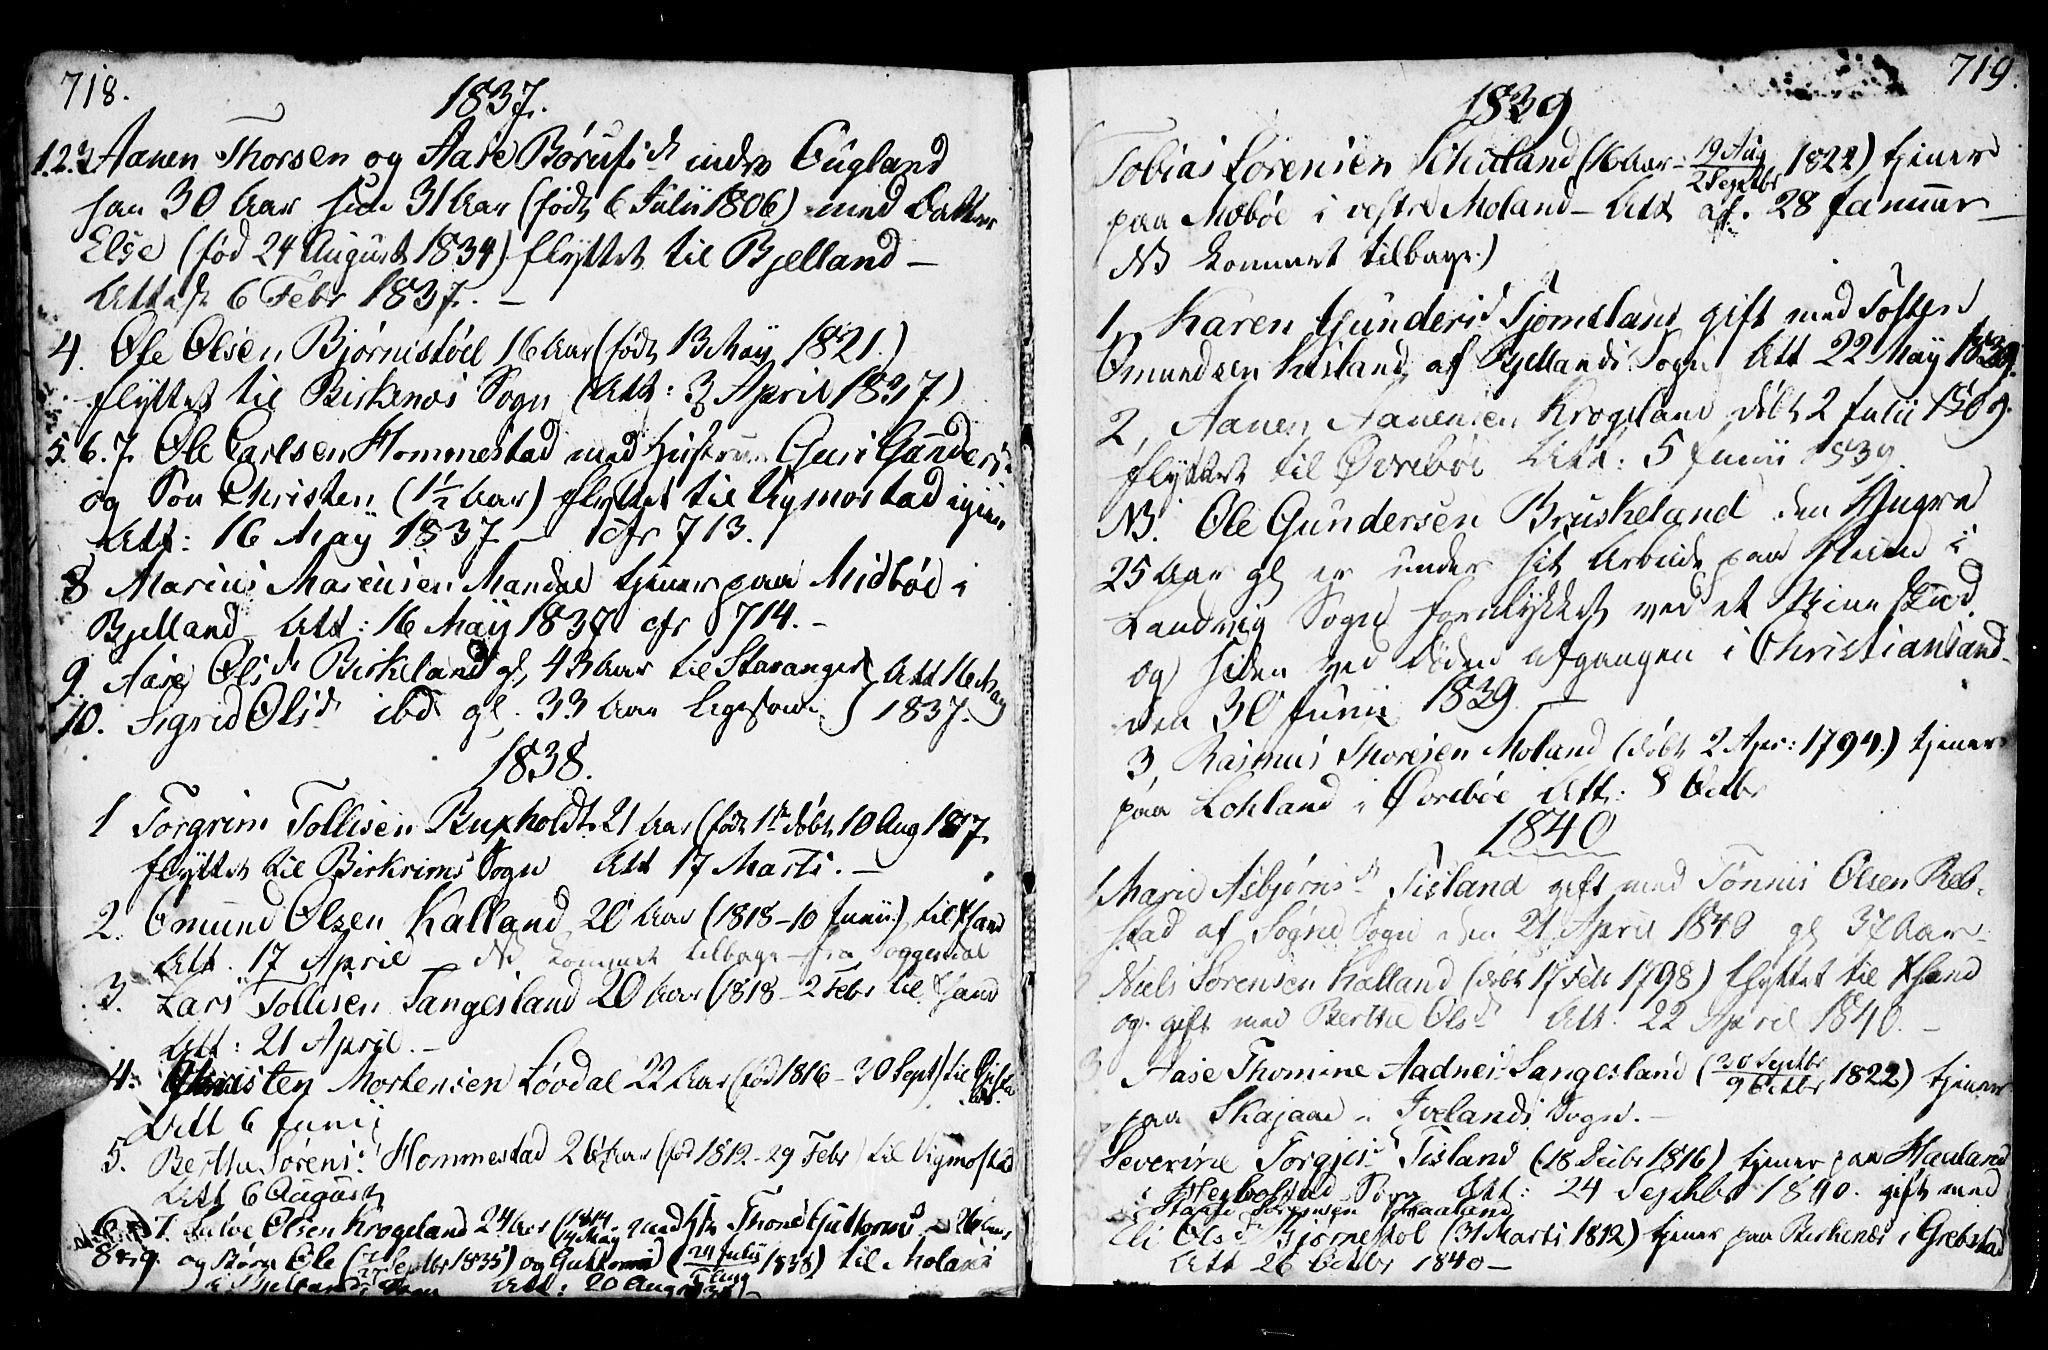 718.
1837.
1.2.3 Aanen Thorsen og Aase Børufsd indre Eugland
han 30 Aar hun 31 Aar (født 6 Julii 1806) med Datter
Else (fød 24 August 1834) flyttet til Bjelland –
Attest 6 Febr 1837. –
4. Ole Olsen Bjørnestøel 16 Aar (født 13 May 1821.)
flyttet til Birkenæs Sogn (Att: 3 April 1837)
5. 6. 7. Ole Carlsen Hommestad med Hustrue Guri Gunders
og Søn Christen (1½ Aar) flyttet til Vigmostad igien
Att: 16 May 1837 – cfr 713.
8 Marius Mareusen Mandal tjener paa Midbøe i
Bjelland – Att: 16 May 1837 cfr 714. –
9. Aase Olsd Birkeland gl. 43 Aar til Stavanger Att 16 May
10. Sigrid Olsd ibd gl. 33 Aar 1837.
1838.
1 Torgrim Tollisen Rupholdt 21 Aar (født 1 døbt 10 Aug 1817
flyttet til Birkrims Sogn Att 17 Marts. –
2. Omund Olsen Kalland 20 Aar (1818 – 10 Junii) til Xsand
Att. 17 April – NB kommet tilbage fra Soggendal
3. Lars Tollisen Sangesland 20 Aar (1818 – 2 Febr til Xsand
Att: 21 April. –
4. Christen Mortensen Løvdal 22 Aar (fød 1816 – 30 Sept) til
Att 6 Junij
5. Berthe Sørensd Hommestad 26 Aar (fød 1812 – 29 Febr) til Vigmostad
Att 6 August
7. Salve Olsen Krogeland 24 Aar (1814 14 May med Thone Guttormsd 26 Aar
8 og 9. og Børn Ole (27 Septbr 1835) og Guttorm (24 Julii 1838) til Moland
i Bjellands Sogn Att: 20 August
719.
1839
Tobias Sørensen (16 Aar – 19 Aug 2 Septbr 1822) tjener
paa Møbøe i vestre Moland – Att af. 28 Januar –
NB kommet tilbage.)
1, Karen Gundersd Tjomsland gift med Tosten
Omundsen af Bjellands Sogn Att 22 May 1839.
2, Aanen Aanensen Krogeland døbt 2 Julii 1809.
flyttet til Øvrebøe Att: 5 Junii 1839
NB. Ole Gundersen Bruskeland den Yngre
25 Aar gl er under sit Arbeide paa i
Landvig Sogn forulykket ved et Mine Skud
og siden ved Døden afgangen i Christiansand
den 30 Junii 1839 –
3, Rasmus Thoresen Moland (døbt 2 Apr: 1794.) tjener
paa Lohland i Øvrebøe Att: 8 Octbr
1840
1 Marie Asbjørnsd Tisland gift med Tønnes Olsen Reb-
stad af Søgne Sogn den 21 April 1840 gl 37 Aar –
2 Niels Sørensen Kalland (døbt 17 Febr 1798) flyttet til Xsand
og gift med Berthe Olsd Att. 22 April 1840. –
3 Aase Thomine Aadnesd Sangesland (30 Septbr 9 Octbr 1822) tjener
paa Skajaae i Ivelands Sogn. –
4 Severine Torgjusd Tisland (18 Decbr 1816) tjener paa Haaland
i Sogn Att: 24 Septbr 1840. gift med
Sørensen Haaland
Eli Olsd Bjørnestøl (31 Marts 1812) tjener paa Birkenæs i Grebstad
Att 26 Octbr 1840 –